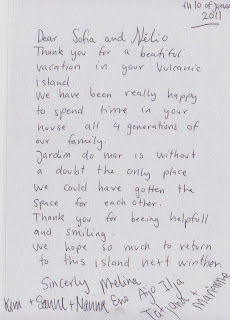 th 10 of
2011
Dear Sofia and Nélio
Thank you for a beautiful
vacation in your Vulcanic
island.
We have been really happy
to spend time in your
house all 4 generations of
our family.
Jardim do mar is without
a doubt the only place
we could have gotten the
space for each other.
Thank you for beeing helpfull
and smiling.
We hope so much to return
to this island next winther.
Sincerly Melina
Kim + Sanne + Nanna Eno Aijo Ilja
Marianne